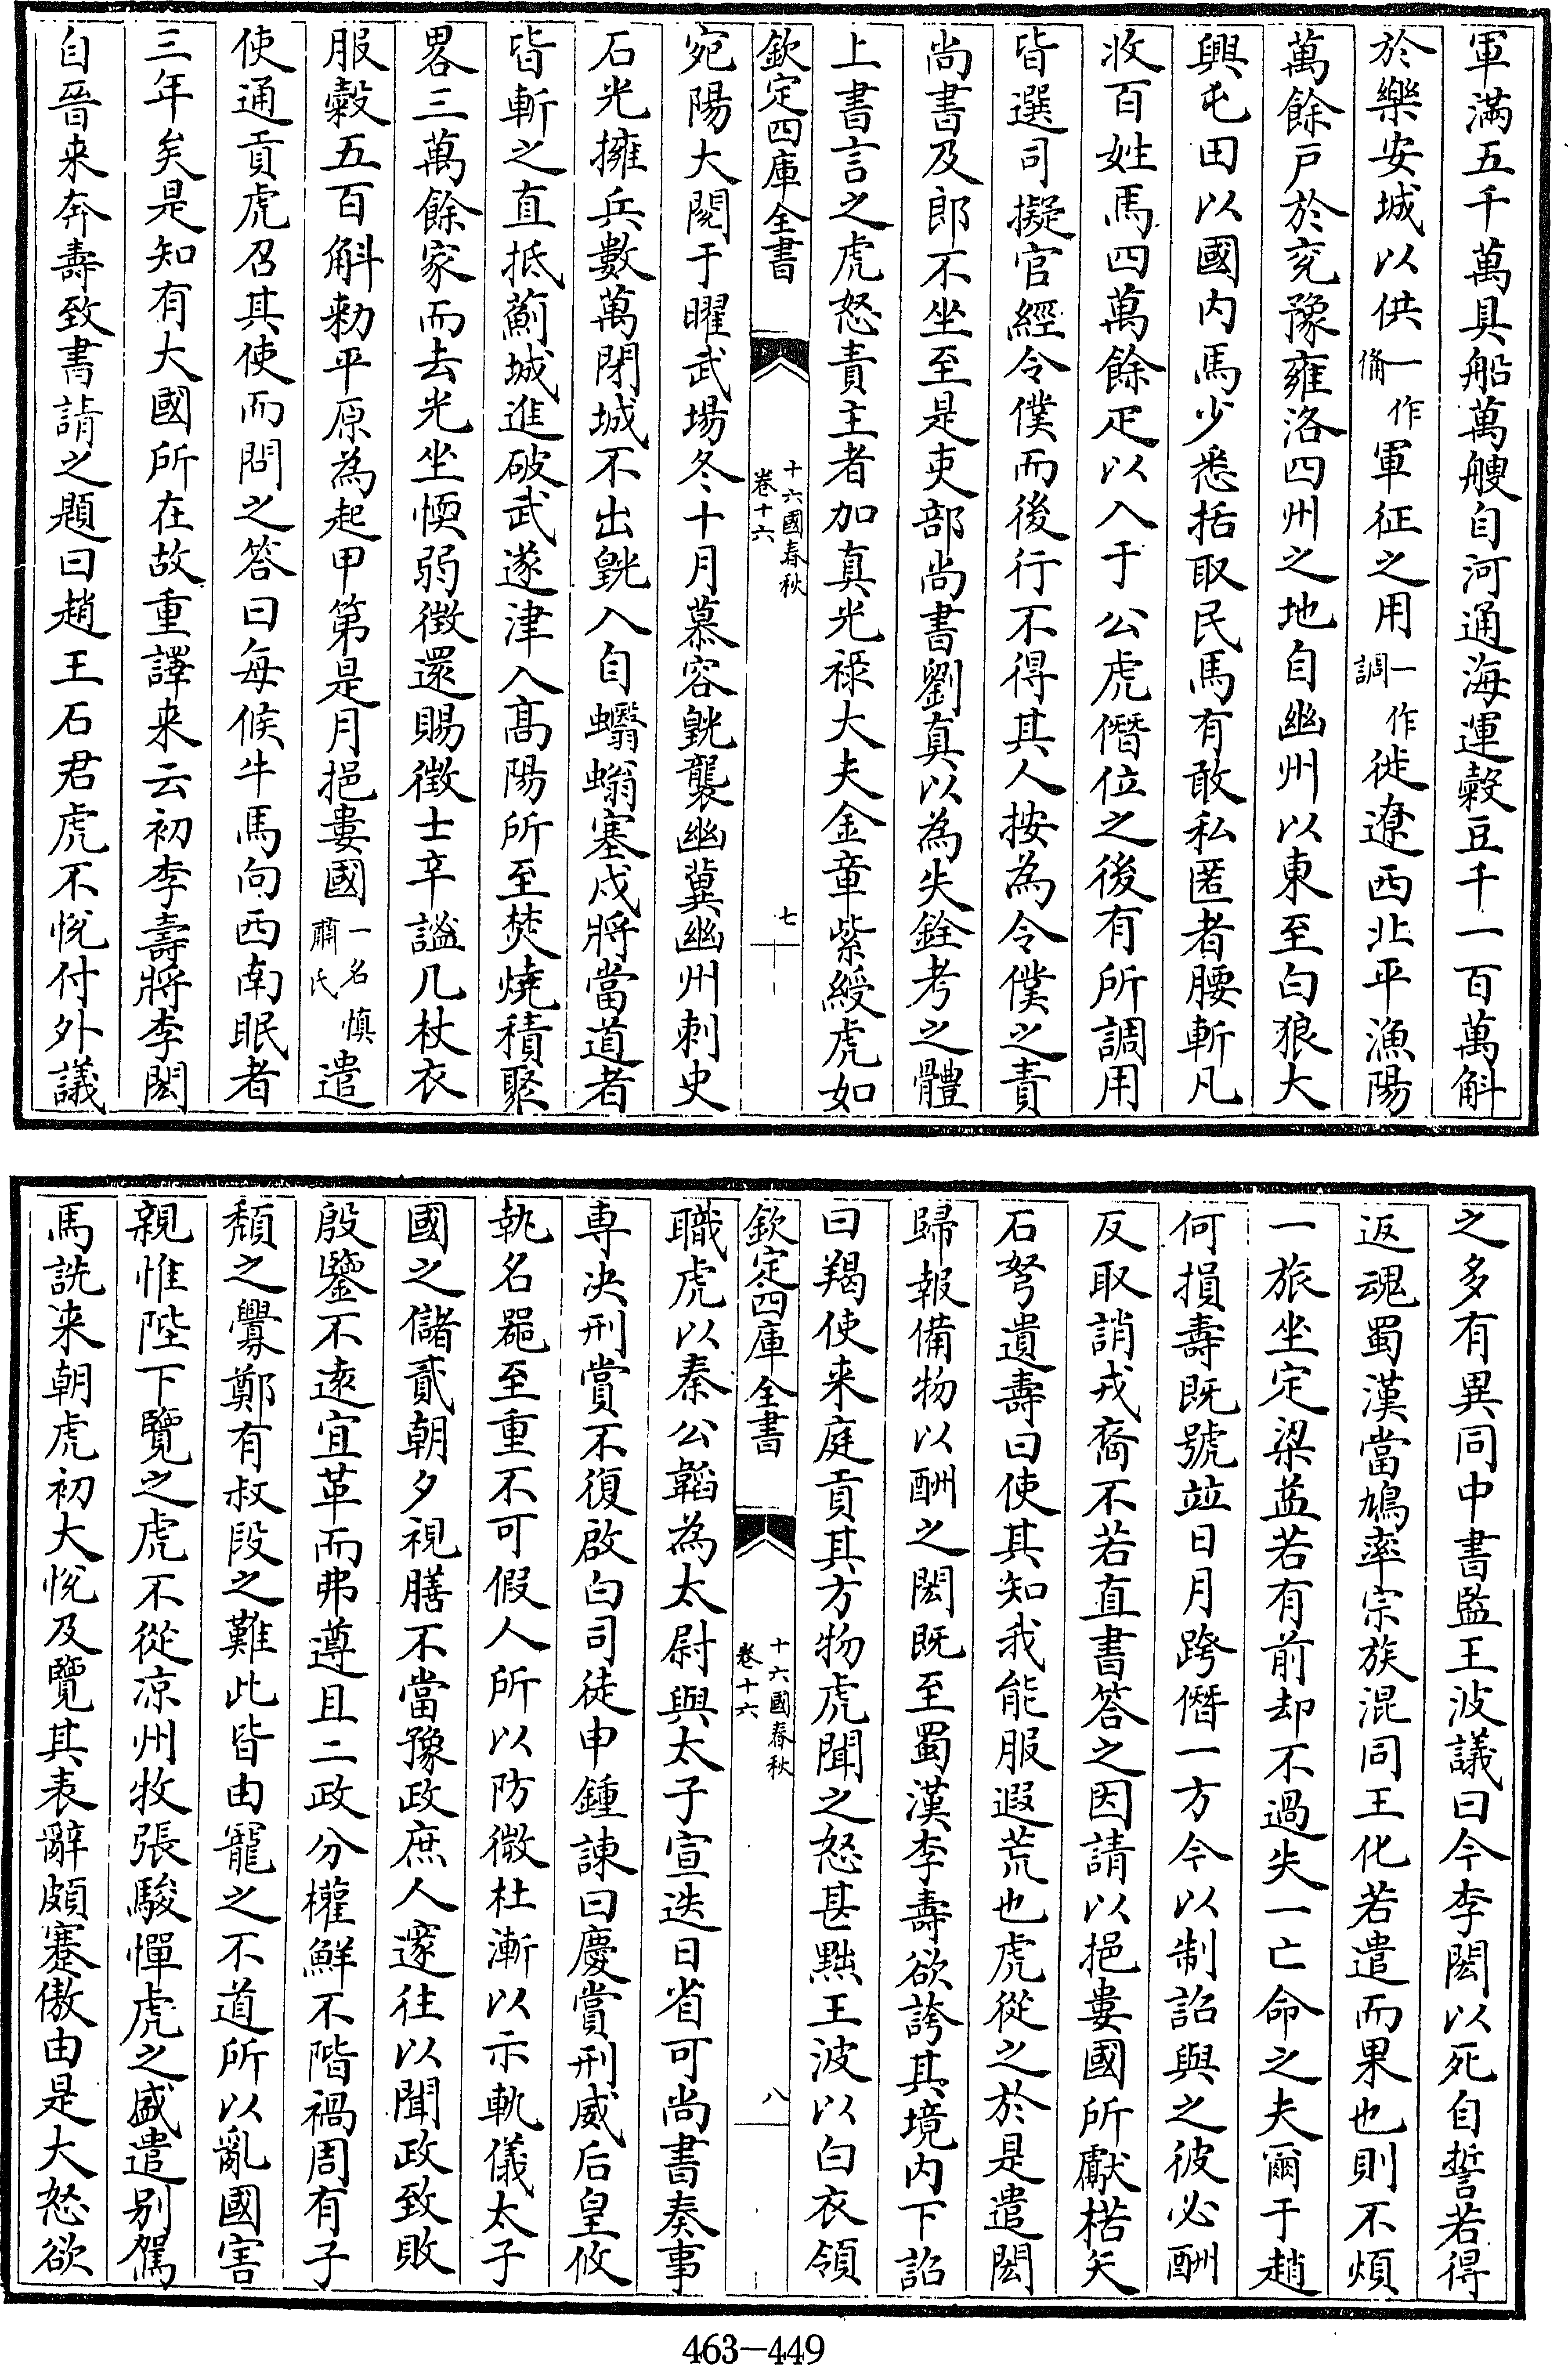 軍滿五千萬具船萬艘自河通海運糓豆千一百萬斛
於樂安城以供一作偹軍征之用一作調徙遼西北平漁陽
萬餘戸於兖豫雍洛四州之地自幽州以東至白狼大
興屯田以國内馬少悉括取民馬有敢私匿者腰斬凡
收百姓馬四萬餘疋以入于公虎僭位之後有所調用
皆選司擬官經令僕而後行不得其人按為令僕之責
尚書及郎不坐至是吏部尚書劉真以為失銓考之體
上書言之虎怒責主者加真光禄大夫金章紫綬虎如
欽定四庫全書 十六國春秋 卷十六 七
宛陽大閱于曜武場冬十月慕容皝襲幽冀幽州刺史
石光擁兵數萬閉城不出皝入自蠮螉塞戍將當道者
皆斬之直抵薊城進破武遂津入髙陽所至焚燒積聚
畧三萬餘家而去光坐愞弱徴還賜徴士辛謐几杖衣
服糓五百斛勅平原為起甲第是月挹婁國一名肅慎氏遣
使通貢虎召其使而問之答曰每候牛馬向西南眠者
三年矣是知有大國所在故重譯来云初李壽將李閎
自晉来奔壽致書請之題曰趙王石君虎不悦付外議
之多有異同中書監王波議曰今李閎以死自誓若得
返魂蜀漢當鳩率宗族混同王化若遣而果也則不煩
一旅坐定梁益若有前却不過失一亡命之夫爾于趙
何損壽既號竝日月跨僭一方今以制詔與之彼必酬
反取誚戎裔不若直書答之因請以挹婁國所獻楛矢
石弩遺壽曰使其知我能服遐荒也虎從之於是遣閎
歸報備物以酬之閎既至蜀漢李壽欲誇其境内下詔
曰羯使来庭貢其方物虎聞之怒甚黜王波以白衣領
欽定四庫全書 十六國春秋 卷十六 八
職虎以秦公韜為太尉與太子宣迭日省可尚書奏事
専决刑賞不復啟白司徒申鍾諫曰慶賞刑威后皇攸
執名噐至重不可假人所以防微杜漸以示軌儀太子
國之儲貳朝夕視膳不當豫政庶人邃往以聞政致敗
殷鑒不逺宜革而弗遵且二政分權鮮不階禍周有子
頽之釁鄭有叔段之難此皆由寵之不道所以亂國害
親惟陛下覽之虎不從凉州牧張駿憚虎之盛遣别駕
馬詵来朝虎初大悦及覽其表辭頗蹇傲由是大怒欲
463-449